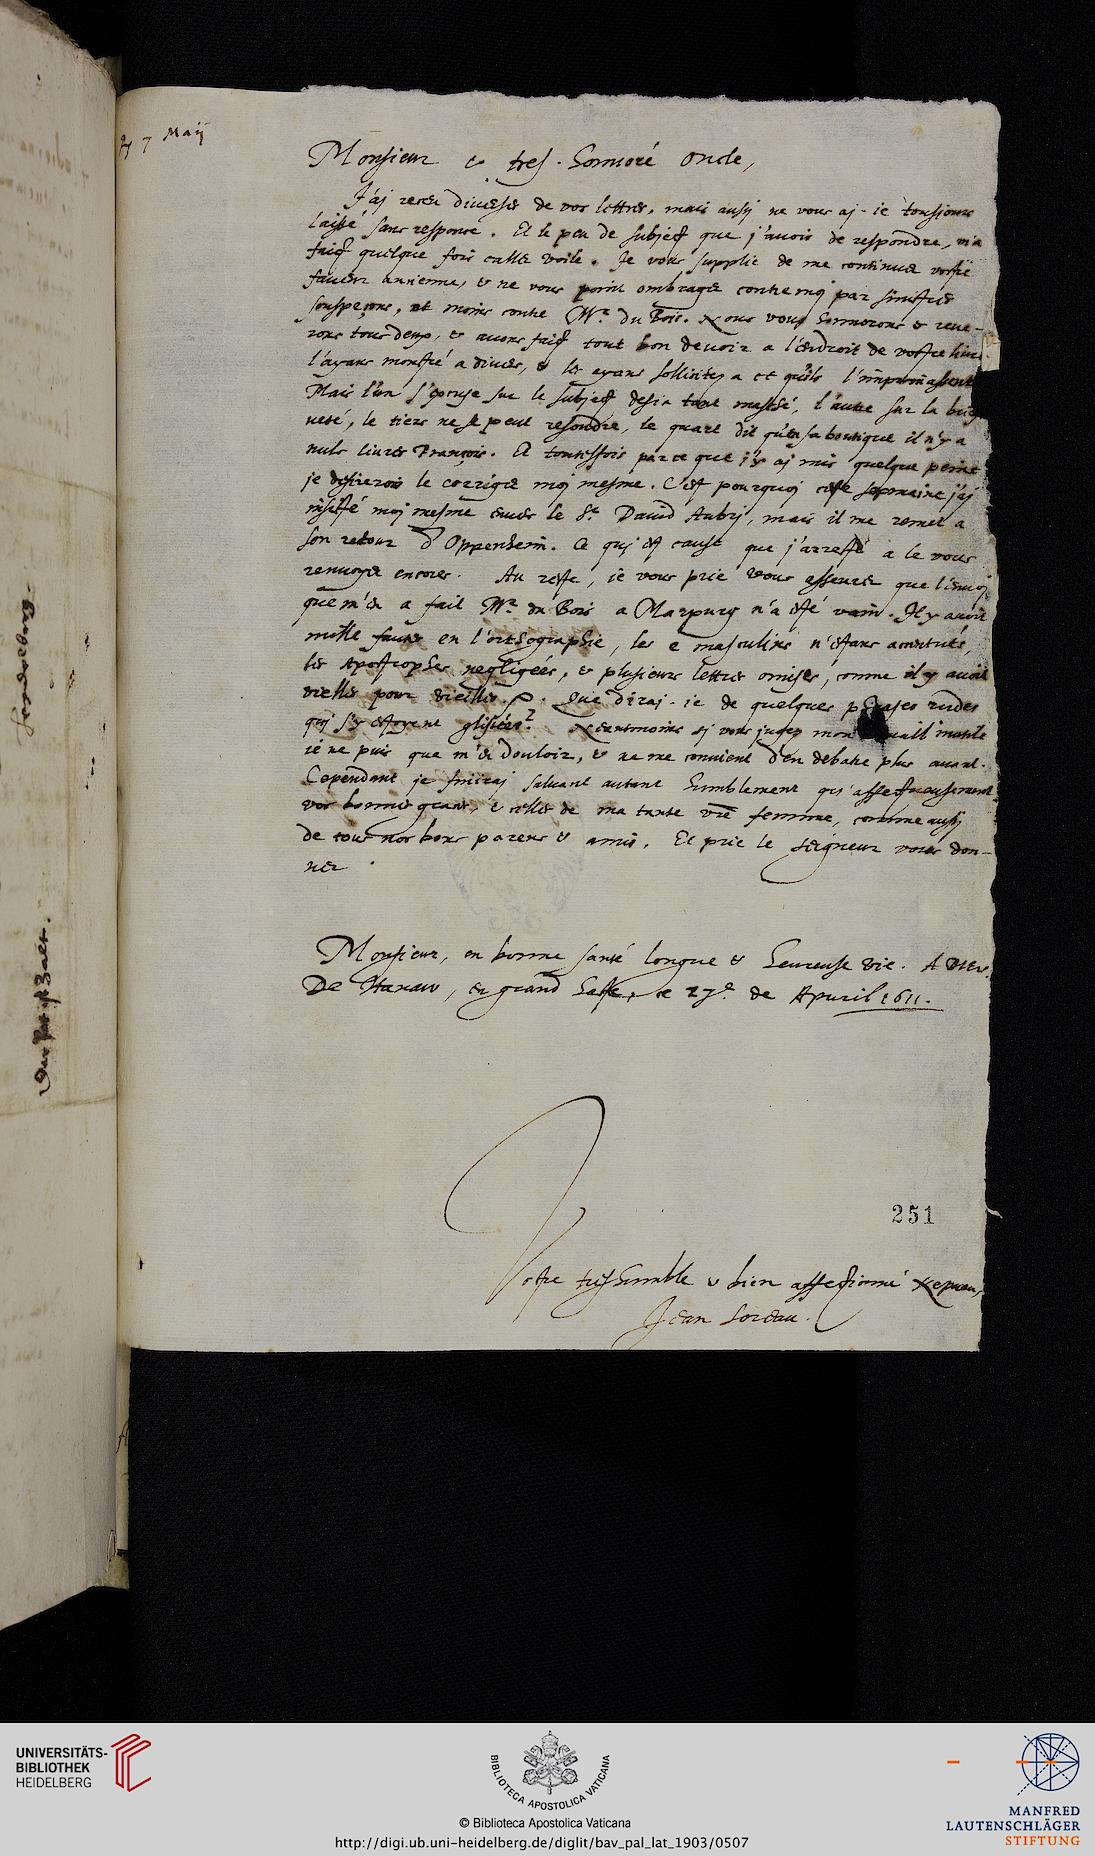 7 Maij
Monsieur & tres-honnoré oncle,
J'aj receu diverses de vos lettres, mais aussj ne vous aj-ie tousiours
laissé sans response. Et le peu de subject que j'avois de respondre, m'a
faict quelque fois caller voile. Je vous supplie de me continuer vostre
faveur ancienne, & ne vous point ombrager contre moj par sinistres
souspeçons, et moins contre Mr. du Bois. Nous vous honnorons & reve-
rons tous deux, & avons faict tout bon devoir a l'endroit de vostre livre
l'ayans monstré a divers, & les ayans sollicitez a ce qu'ils l'imprimassent
Mais l'un s'excuse sur le subject desia tant masché, l'autre sur la brie
veté, le tiers ne se peut resoudre, le quart dit qu'en sa boutique il n'y a
nuls livres François. Et toutesfois parce que j'y aj mis quelque peine
je desirerois le corriger moj mesme. C'est pourquoj ceste sepmaine j'aj
insisté moj mesme envers le Sr. David Aubrj, mais il me remet a
son retour d'Oppenheim. Ce quj est cause que j'arreste a le vous
renvoyer encores. Au reste, je vous prie vous asseurer que l'envoj
que m'en a fait Mr. du Bois a Marpurg n'a esté vain. Il y avoit
mille fautes en l'orthographie, les e masculins n'estans accentués,
les Apostrophes negligées, & plusieurs lettres omises, comme il y avoit
vielles pour vieilles. Que diraj-ie de quelques phrases rudes
quj s'y estoyent glissées? Neantmoins sj vous jugez mon travail inutile
ie ne puis que m'en douloir, & ne me convient d'en debatre plus avant.
Cependant je finiraj saluant autant humblement qu'affectueusement
vos bonnes graces, & celles de ma tante vre femme, comme aussj
de tous nos bons parens & amis. Et prie le Seigneur vous don-
ner
Monsieur, en bonne santé longue & heureuse vie. A DIEU.
De Hanaw, en grand haste, ce 27e. de Apvril 1611.
251
Vostre treshumble & bien affectionné Nepveu,
Jean Loreau.
UNIVERSITÄTS-
BIBLIOTHEK
HEIDELBERG
BIBLIOTECA APOSTOLICA VATICANA
© Biblioteca Apostolica Vaticana
http://digi.ub.uni-heidelberg.de/diglit/bav_pal_lat_1903/0507
MANFRED
LAUTENSCHLÄGER
STIFTUNG